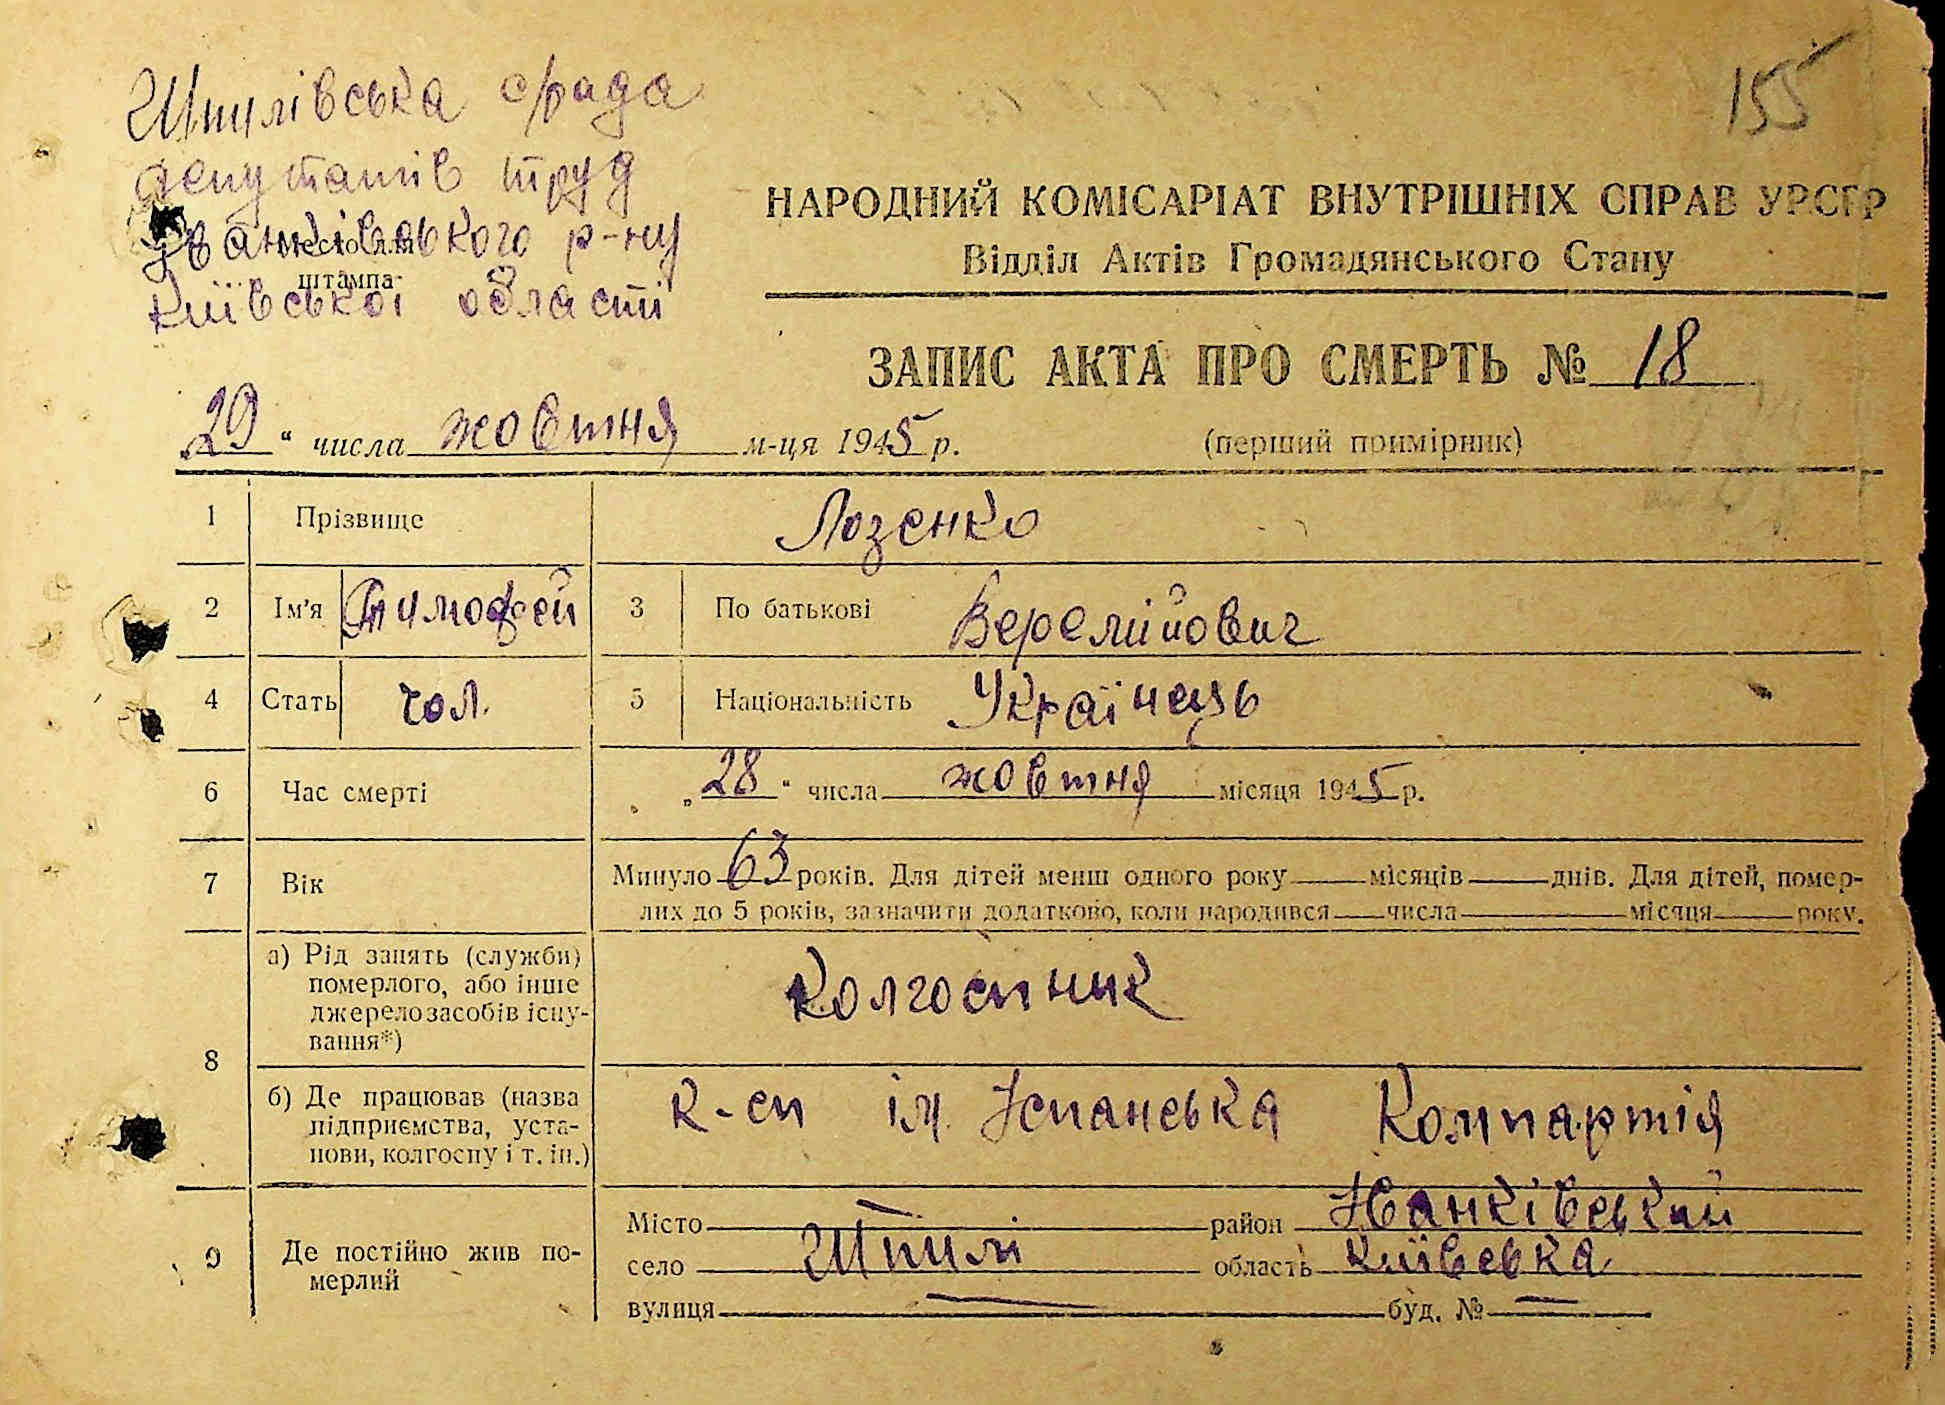 155
Шпилівська с/рада
депутатів труд
Іванківського р-ну
Київської області
Место для
штампа
НАРОДНИЙ КОМІСАРІАТ ВНУТРІШНІХ СПРАВ УРСР
Відділ Актів Громадянського Стану
ЗАПИС АКТА ПРО СМЕРТЬ № 18
29 " числа жовтня м-ця 1945 р.
(перший примірник)
1 Прізвище Лозенко
2 Ім'я Тимофей 3 По батькові Веремійович
4 Стать чол. 5 Національність Українець
6 Час смерті „28" числа жовтня місяця 1945 р.
7 Вік Минуло 63 років. Для дітей менш одного року місяців днів. Для дітей, помер-
лих до 5 років, зазначити додатково, коли народився числа місяця року.
8 а) Рід занять (служби)
померлого, або інше
джерело засобів існу-
вання*)
Колгоспник
б) Де працював (назва
підприємства, уста-
нови, колгоспу і т. ін.)
к-сп ім. Іспанська Компартія
9 Де постійно жив по-
мерлий
Місто — район Іванківський
село Шпилі область Київська
вулиця — буд. № —